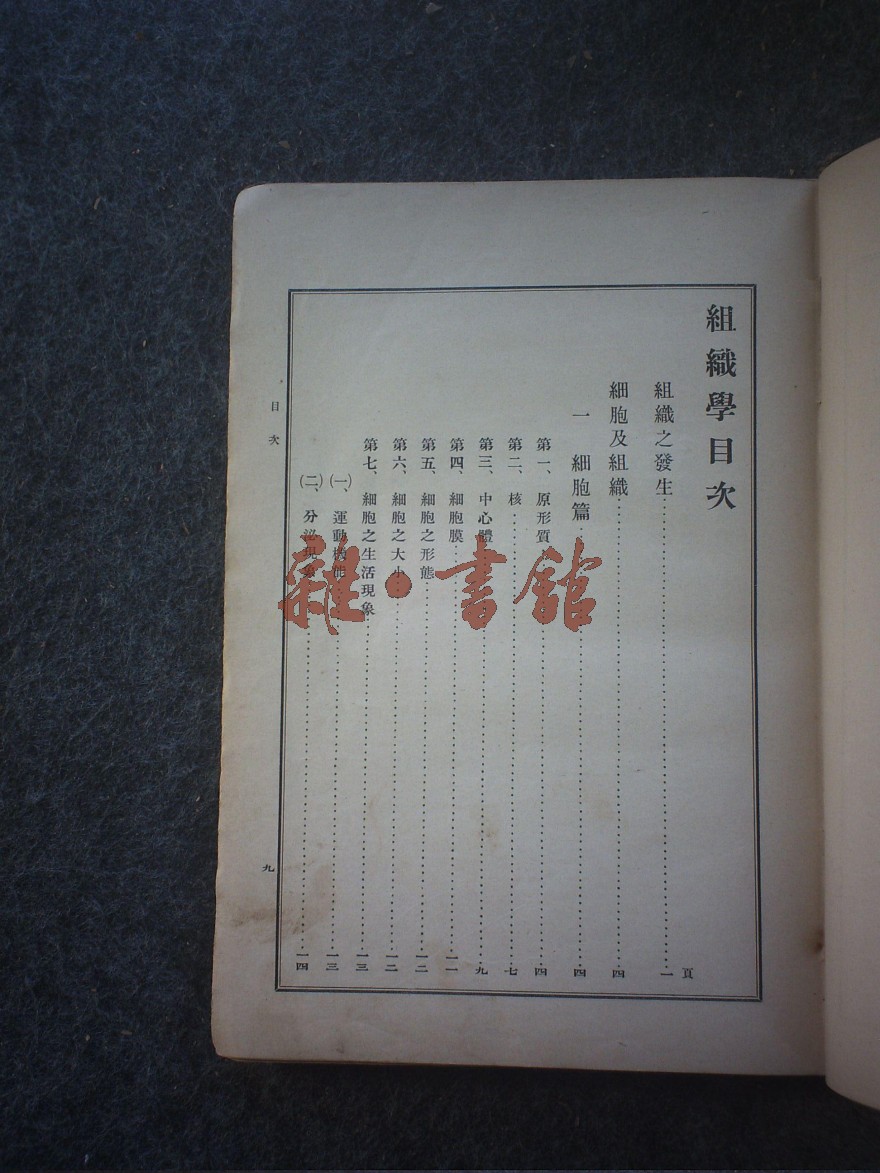 組織學目次
頁
組織之發生……一
細胞及組織……四
一 細胞篇……四
第一、原形質……四
第二、核……七
第三、中心體……九
第四、細胞膜……一一
第五、細胞之形態……一二
第六、細胞之大小……一二
第七、細胞之生活現象……一三
(一)、運動機能……一三
(二)、分泌現象……一四
目次
九
雜·書館